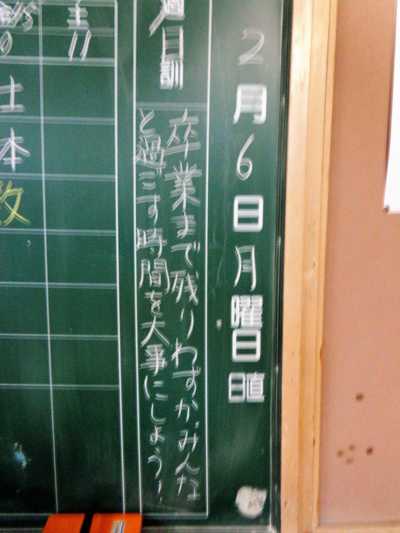 2月6日月曜日
日直
週目訓
卒業まで残りわずか、みんな
と過ごす時間を大事にしよう!
土
11
土
本
攵